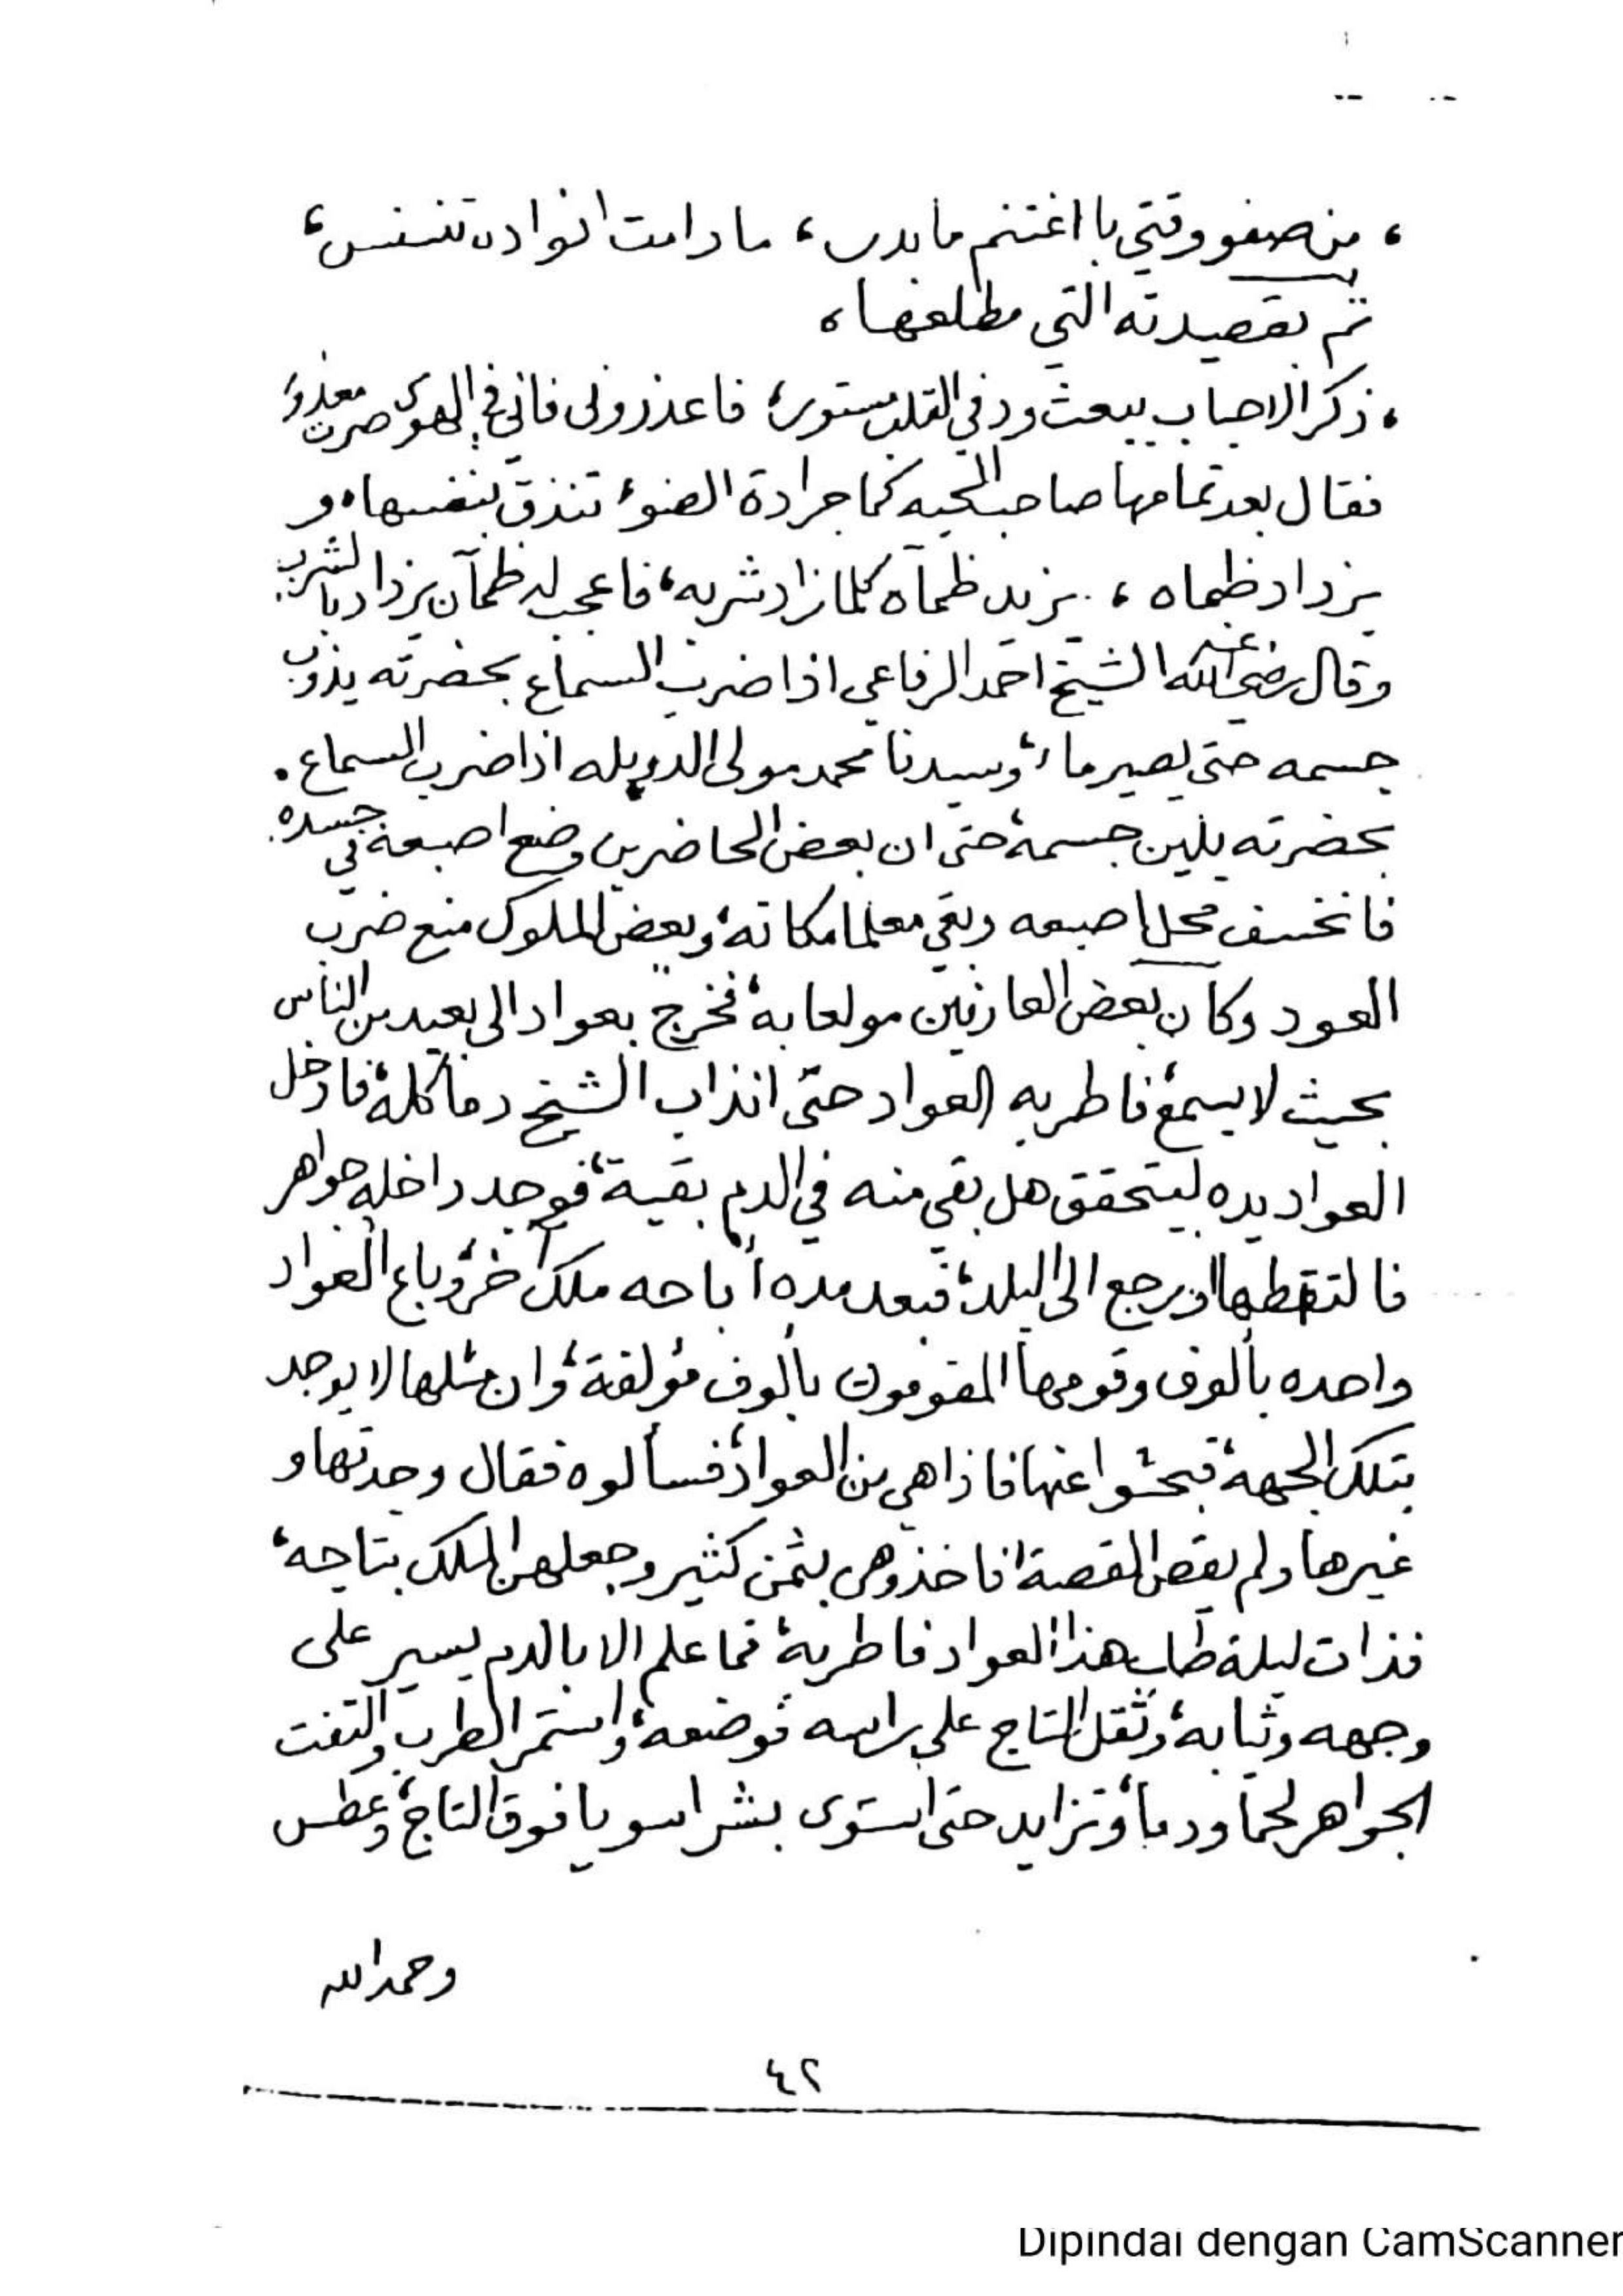 ، من صفو وقتي با اغتنم ما بدى، ما دامت انواده تتنسنس،
ثم بقصيدته التي مطلعها،
، ذكر الاحباب يبعث ود في القلب مستور، فاعذروني فاني في الهوى صرت معذور،
فقال بعد تمامها صاحب المحبه كما جرادة الضوء تنذق بنفسها، و
يزداد ظماه، يزيد ظمآه كلما زاد شربه، فاعجب له ظمآن يزداد بالشرب.
وقال رضي الله عنه الشيخ احمد الرفاعي اذا ضرب السماع بحضرته يذوب
جسمه حتى يصير ماء، وسيدنا محمد مولى الدويله اذا ضرب السماع.
بحضرته يلين جسمه، حتى ان بعض الحاضرين وضع اصبعه في جسده.
فانخسف محل اصبعه وبقي معلما مكانه، وبعض الملوك منع ضرب
العود وكان بعض العارفين مولعا به، فخرج بعواد الى بعيد من الناس
بحيث لا يسمع، فاطربه العواد حتى انذاب الشيخ دما كله، فادخل
العواد يده ليتحقق هل بقي منه في الدم بقية، فوجد داخله جواهر
فالتقطها ورجع الى البلد، فبعد مده أباحه ملك آخر، وباع العواد
واحده بألوف وقومها المقومون بألوف مؤلفة، وان مثلها لا يوجد
بتلك الجهة، فبحثوا عنها فاذا هي من العواد، فسألوه فقال وجدتها و
غيرها ولم يقص القصة، فاخذوهن بثمن كثير وجعلهن الملك بتاجه،
فذات ليلة طلب هذا العواد فاطربه، فما علم الا بالدم يسير على
وجهه وثيابه، وثقل التاج على راسه فوضعه، واستمر الطرب والتفت
الجواهر لحما ودما، وتزايد حتى استوى بشرا سويا فوق التاج، وعطس
وحمد الله
٤٢
Dipindai dengan CamScanner